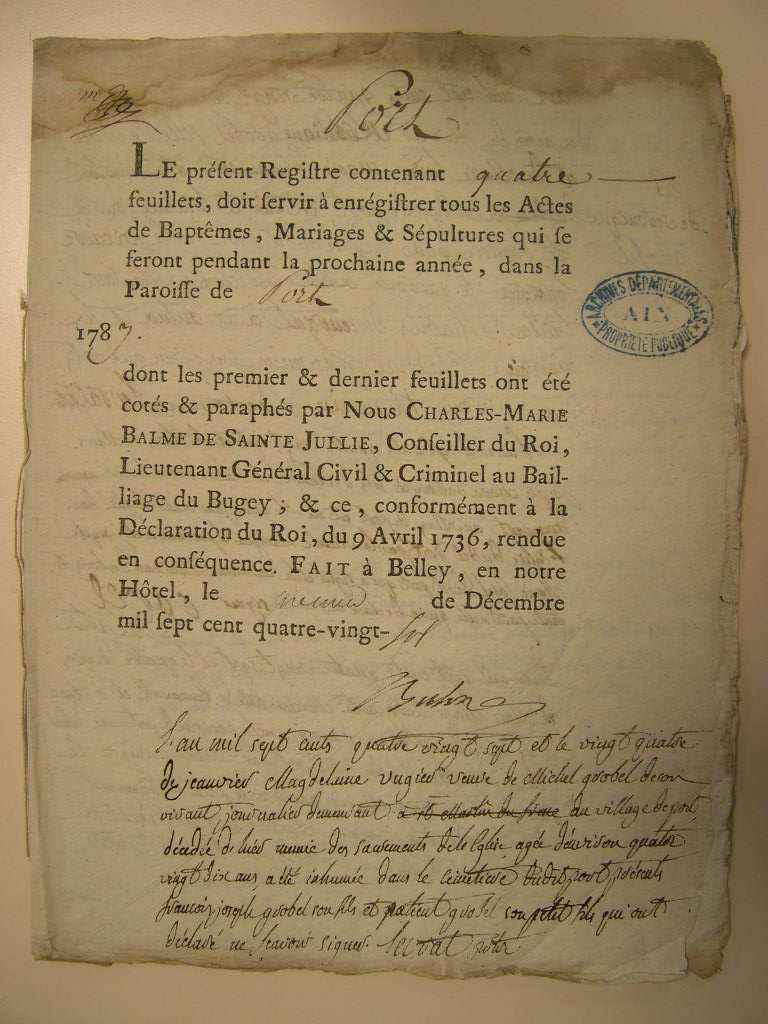 Port
LE préſent Regiſtre contenant quatre
feuillets, doit ſervir à enrégiſtrer tous les Actes
de Baptêmes, Mariages & Sépultures qui ſe
feront pendant la prochaine année, dans la
Paroiſſe de Port
1787.
ARCHIVES DÉPARTEMENTALES
AIX
PROPRIÉTÉ PUBLIQUE
dont les premier & dernier feuillets ont été
cotés & paraphés par Nous CHARLES-MARIE
BALME DE SAINTE JULLIE, Conſeiller du Roi,
Lieutenant Général Civil & Criminel au Bail-
liage du Bugey; & ce, conformément à la
Déclaration du Roi, du 9 Avril 1736, rendue
en conſéquence. FAIT à Belley, en notre
Hôtel, le premier de Décembre
mil ſept cent quatre-vingt-six
L'an mil sept cents quatre vingt sept et le vingt quatre
de janvier Magdelaine Vugier veuve de Michel gobel de son
vivant journalier demeurant a St Martin du frene du village de port
décédée d'hier munie des sacrements de l'Eglise agée d'environ quatre
vingt dix ans, a été inhumée dans le cimetiere dudit port présents
francois joseph gobel son fils et patient gobel son petit fils qui ont
déclaré ne scavoir signer